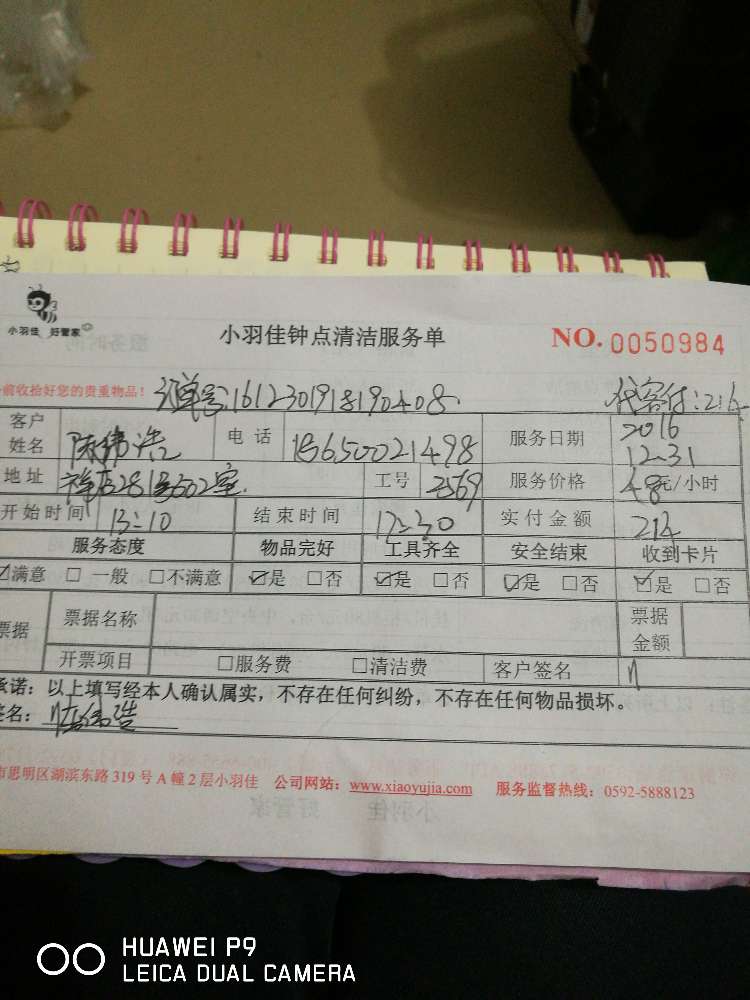 小羽佳 好管家
小羽佳钟点清洁服务单
NO. 0050984
前收拾好您的贵重物品！ 订单号:1612301918190408. 代客付:214
客户姓名 陈纬浩 电话 15650021498 服务日期 2016 12-31
地址 28号502室 工号 2569 服务价格 48元/小时
开始时间 13:10 结束时间 17:30 实付金额 214
服务态度 物品完好 工具齐全 安全结束 收到卡片
☑满意 □一般 □不满意 ☑是 □否 ☑是 □否 ☑是 □否 ☑是 □否
票据 票据名称 票据金额
开票项目 □服务费 □清洁费 客户签名
承诺：以上填写经本人确认属实，不存在任何纠纷，不存在任何物品损坏。
签名：
市思明区湖滨东路 319 号 A 幢 2 层小羽佳 公司网站：www.xiaoyujia.com 服务监督热线：0592-5888123
HUAWEI P9
LEICA DUAL CAMERA